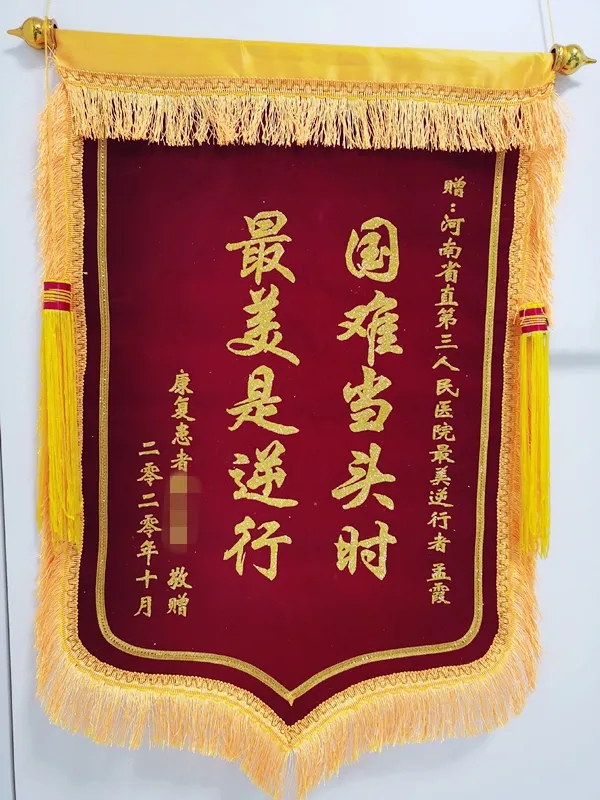 赠：河南省直第三人民医院最美逆行者 孟霞
国难当头时
最美是逆行
康复患者 敬赠
二零二零年十月